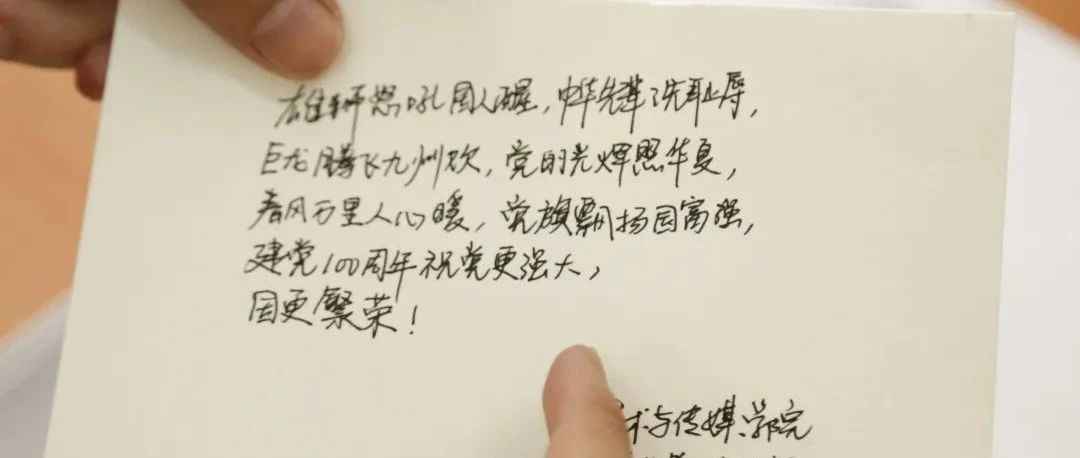 雄狮怒吼国人醒，中华先辈洗耻辱，
巨龙腾飞九州欢，党的光辉照华夏，
春风万里人心暖，党旗飘扬国富强，
建党100周年祝党更强大，
国更繁荣！
术与传媒学院